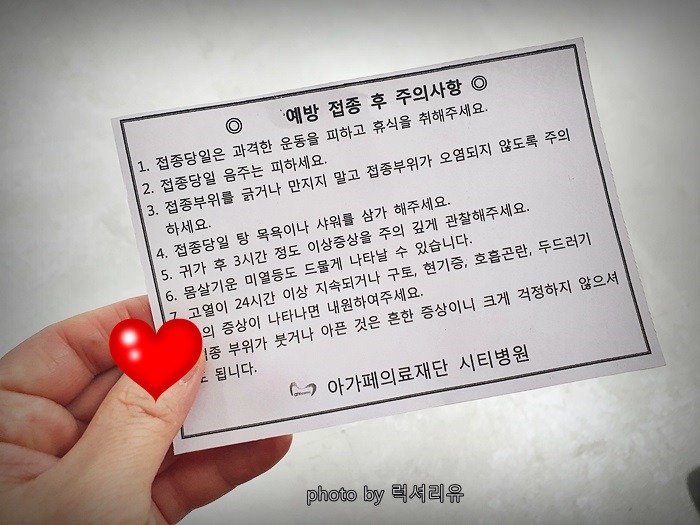 ◎ 예방 접종 후 주의사항 ◎
1. 접종당일은 과격한 운동을 피하고 휴식을 취해주세요.
2. 접종당일 음주는 피하세요.
3. 접종부위를 긁거나 만지지 말고 접종부위가 오염되지 않도록 주의
하세요.
4. 접종당일 탕 목욕이나 샤워를 삼가 해주세요.
5. 귀가 후 3시간 정도 이상증상을 주의 깊게 관찰해주세요.
6. 몸살기운 미열등도 드물게 나타날 수 있습니다.
7. 고열이 24시간 이상 지속되거나 구토, 현기증, 호흡곤란, 두드러기
의 증상이 나타나면 내원하여주세요.
부위가 붓거나 아픈 것은 흔한 증상이니 크게 걱정하지 않으셔
됩니다.
아가페의료재단 시티병원
photo by 럭셔리유